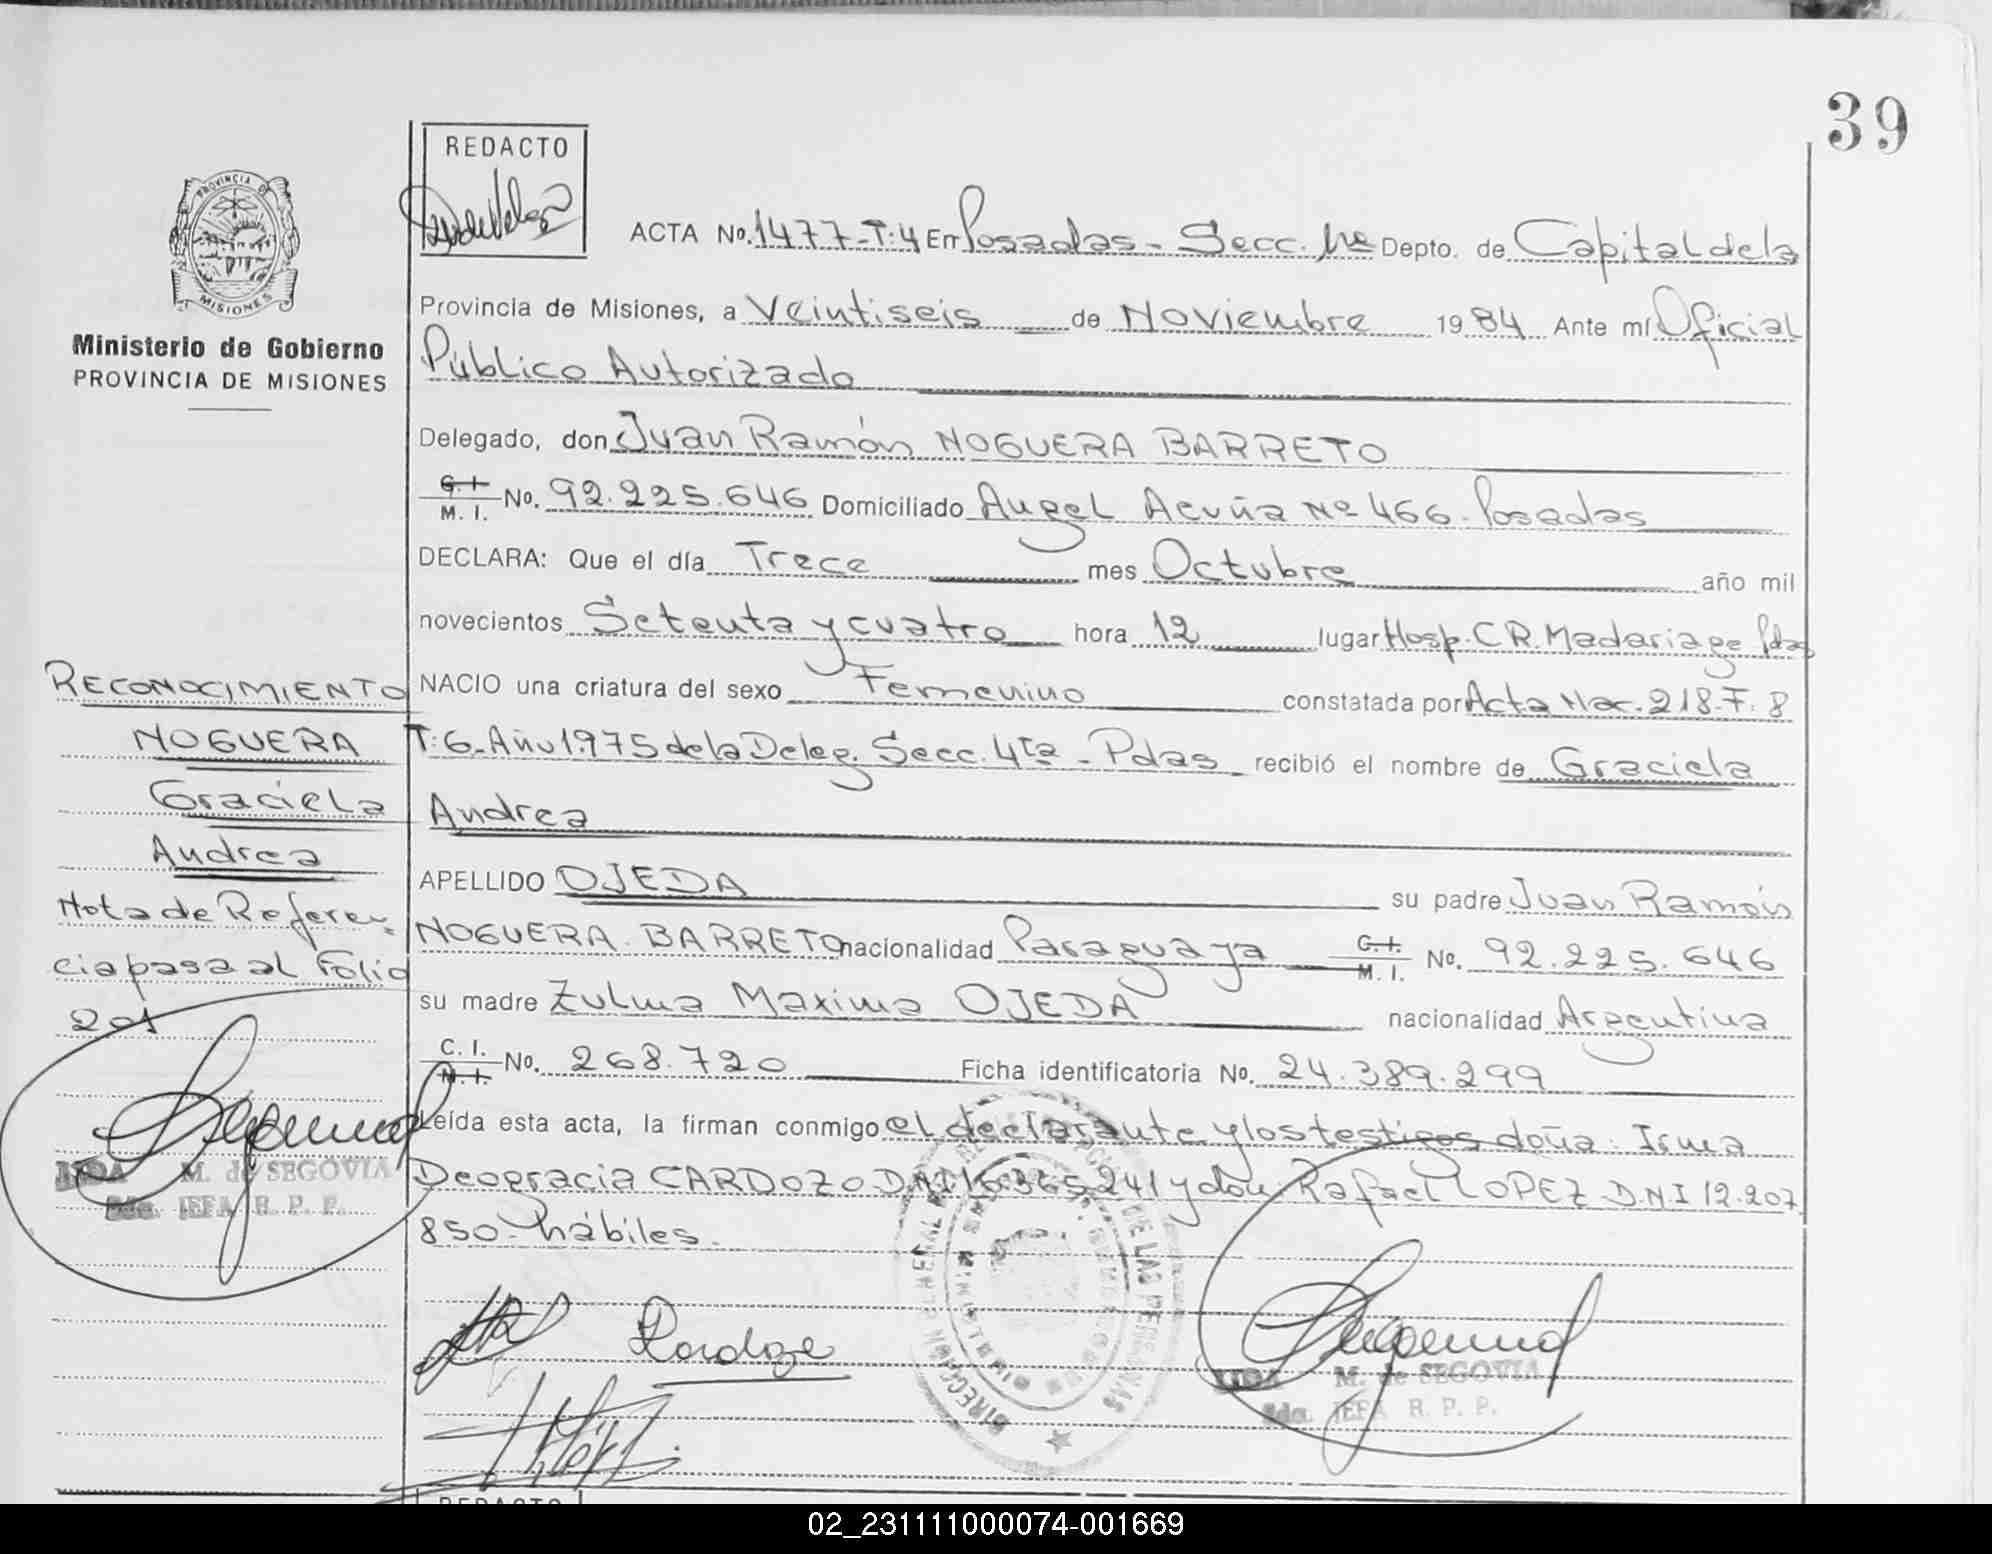 39
REDACTO
PROVINCIA DE
MISIONES
Ministerio de Gobierno
PROVINCIA DE MISIONES
ACTA No. 1477-T:4 En Posadas - Secc. 1ra Depto. de Capital de la
Provincia de Misiones, a Veintiseis de Noviembre 19 84 Ante mí Oficial
Público Autorizado
Delegado, don Juan Ramón NOGUERA BARRETO
C. I. M. I. No. 92.225.646 Domiciliado Angel Acuña Nº 466 - Posadas
DECLARA: Que el día Trece mes Octubre año mil
novecientos Setenta y cuatro hora 12 lugar Hosp. C R. Madariaga Pdas
NACIO una criatura del sexo Femenino constatada por Acta Nac. 218. F. 8
T: 6 - Año 1.975 de la Deleg. Secc. 4ta - Pdas recibió el nombre de Graciela
Andrea
APELLIDO OJEDA su padre Juan Ramón
NOGUERA BARRETO nacionalidad Paraguaya C. I. M. I. No. 92.225.646
su madre Zulma Maxima OJEDA nacionalidad Argentina
C. I. M. I. No. 268.720 Ficha identificatoria No. 24.389.299
Leída esta acta, la firman conmigo el declarante y los testigos doña: Irma
Deogracia CARDOZO D.N.I 16.365.241 y don Rafael LOPEZ D.N.I 12.207
850 - hábiles.
RECONOCIMIENTO
NOGUERA
Graciela
Andrea
Nota de Referen-
cia pasa al Folio
201
LIDA M. de SEGOVIA
2da. JEFA R. P. P.
Cardozo
LIDA M. de SEGOVIA
2da. JEFA R. P. P.
DE LAS PERSONAS
REDACTO
02_231111000074-001669